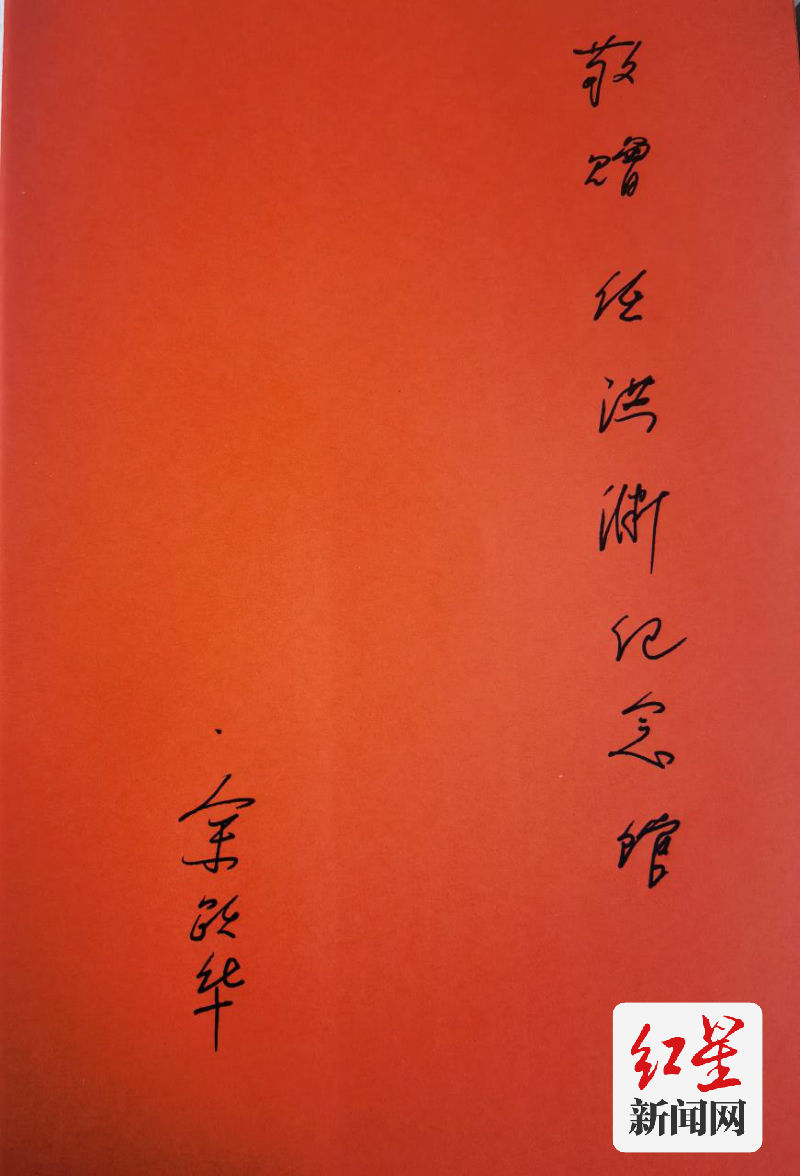 敬赠任洪渊纪念馆
余跃华
红星
新闻网